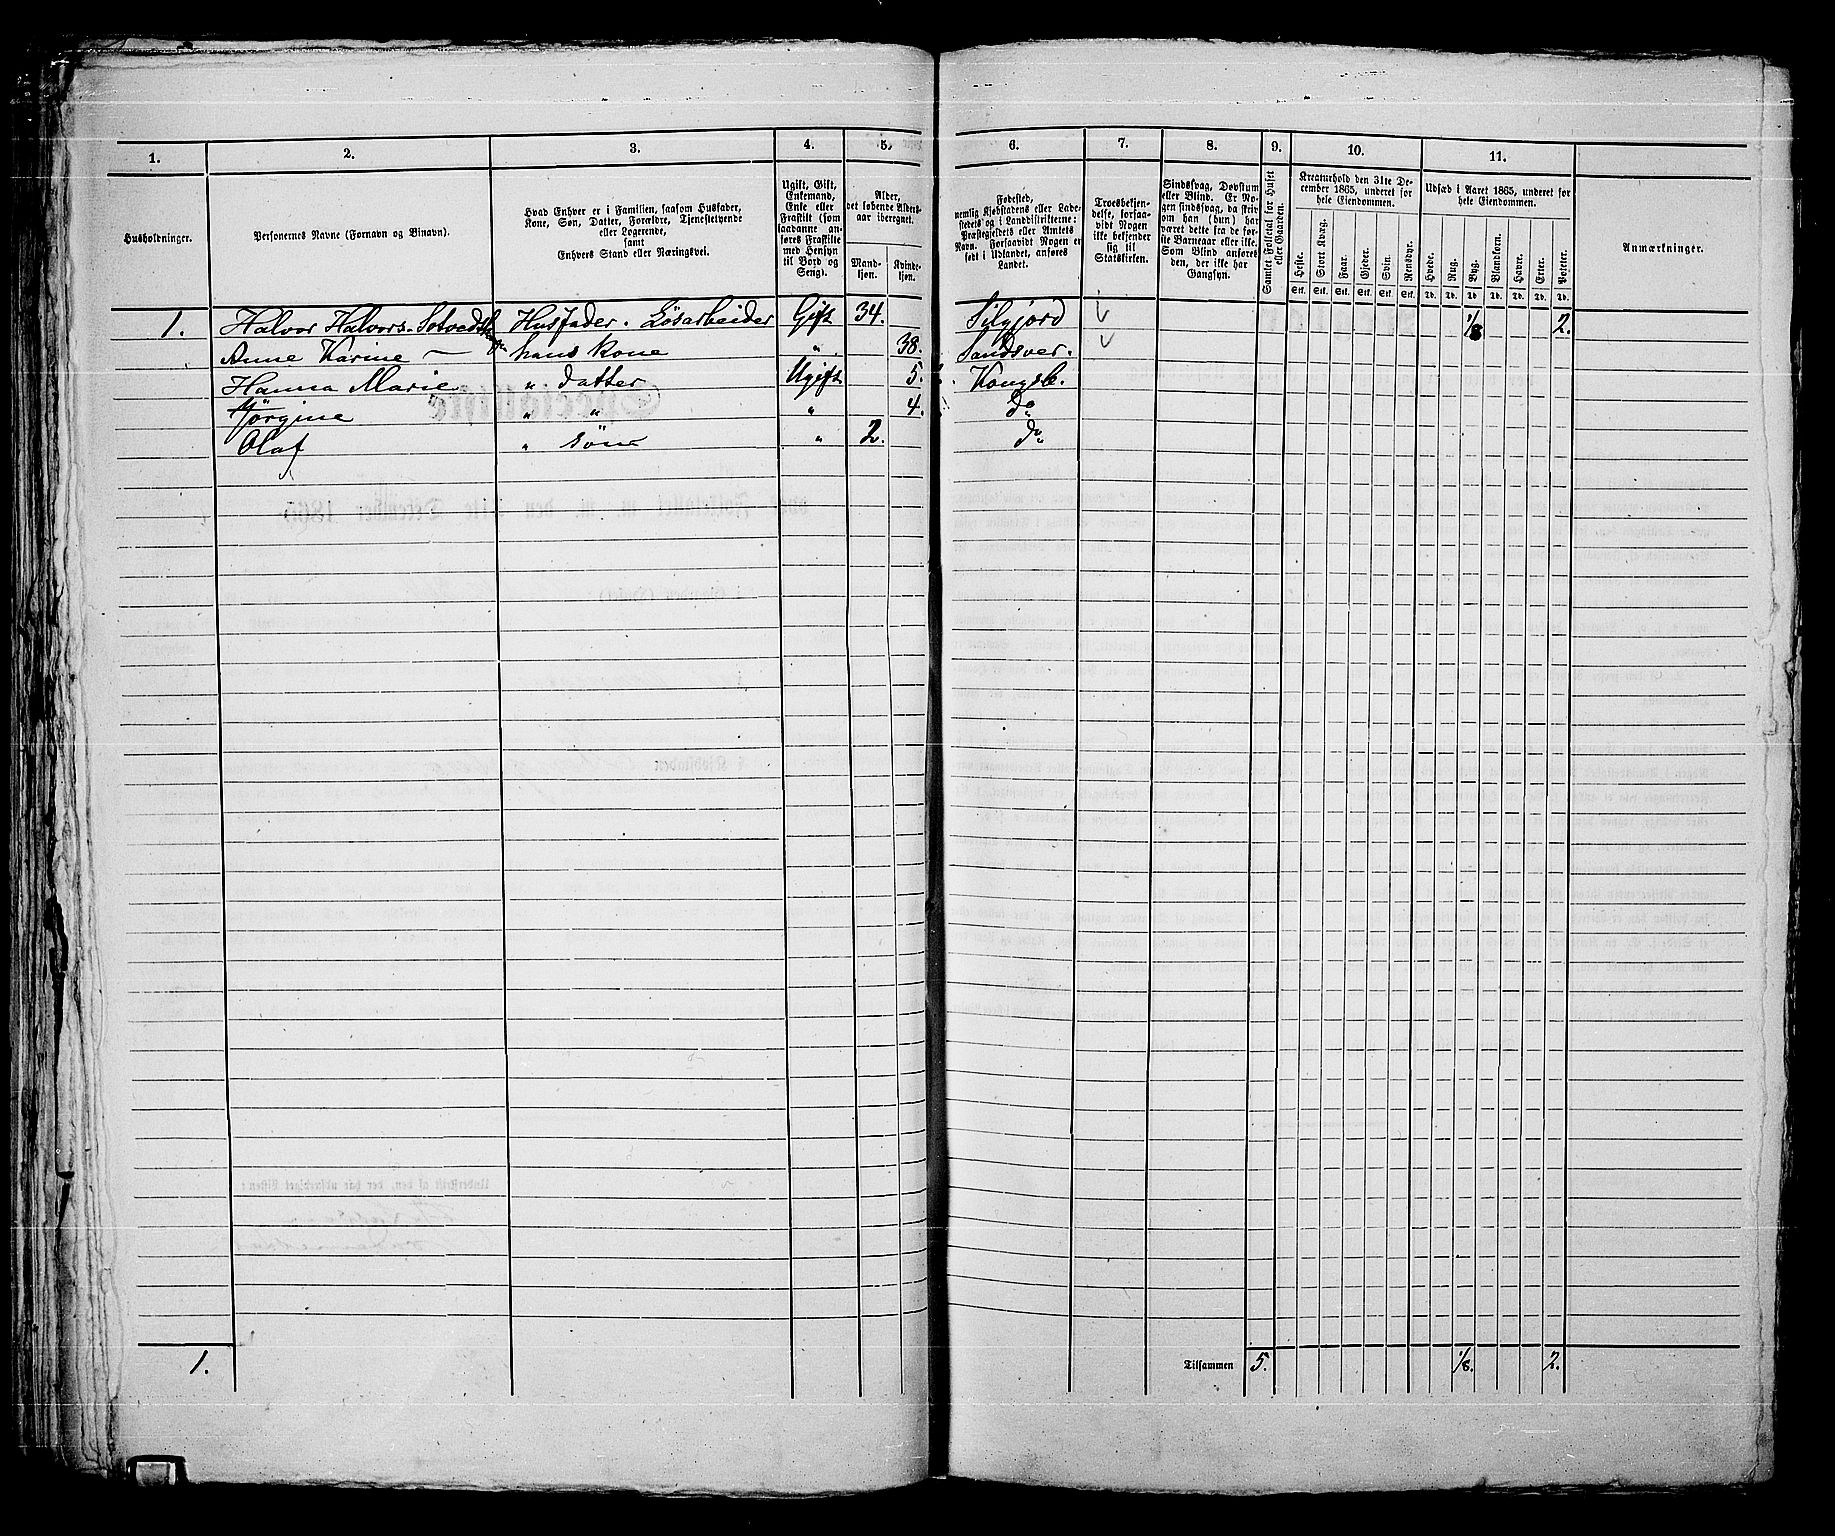 1. 2. 3. 4. 5. 6. 7. 8. 9. 10. 11.
Husholdninger.
Personernes Navne (Fornavn og Binavn).
Hvad Enhver er i Familien, saasom Husfader,
Kone, Søn, Datter, Forældre, Tjenestetyende
eller Logerende,
samt
Enhvers Stand eller Næringsvei.
Ugift, Gift,
Enkemand,
Enke eller
Fraskilt (som
saadanne an-
føres Fraskilte
med Hensyn
til Bord og
Seng).
Alder,
det løbende Alders-
aar iberegnet.
Mand-
kjøn.
Kvinde-
kjøn.
Fødested,
nemlig Kjøbstadens eller Lade-
stedets og i Landdistrikterne:
Præstegjeldets eller Amtets
Navn. Forsaavidt Nogen er
født i Udlandet, anføres
Landet.
Troesbekjen-
delse, forsaa-
vidt Nogen
ikke bekjender
sig til
Statskirken.
Sindssvag, Døvstum
eller Blind. Er No-
gen sindssvag, da skriv
om han (hun) har
været dette fra de før-
ste Barneaar eller ikke.
Som Blind anføres
den, der ikke har
Gangsyn.
Samlet Folketal for Huset
eller Gaarden.
Kreaturhold den 31te De-
cember 1865, underet for
hele Eiendommen.
Heste. Stort Kvæg. Faar. Gjeder. Svin. Rensdyr.
Stk. Stk. Stk. Stk. Stk. Stk.
Udsæd i Aaret 1865, underet for
hele Eiendommen.
Hvede. Rug. Byg. Blandkorn. Havre. Erter. Poteter.
Td. Td. Td. Td. Td. Td. Td.
Anmærkninger.
1. Halvor Halvors. Husfader. Løsarbeider Gift 34. Siljord 1/8 2.
Anne Karine — hans kone " 38. Sandsver.
Hanna Marie " datter Ugift 5. Kongsb.
Jørgine " " " 4. Do
Olaf " søn " 2. Do
1. Tilsammen 5. 1/8. 2.